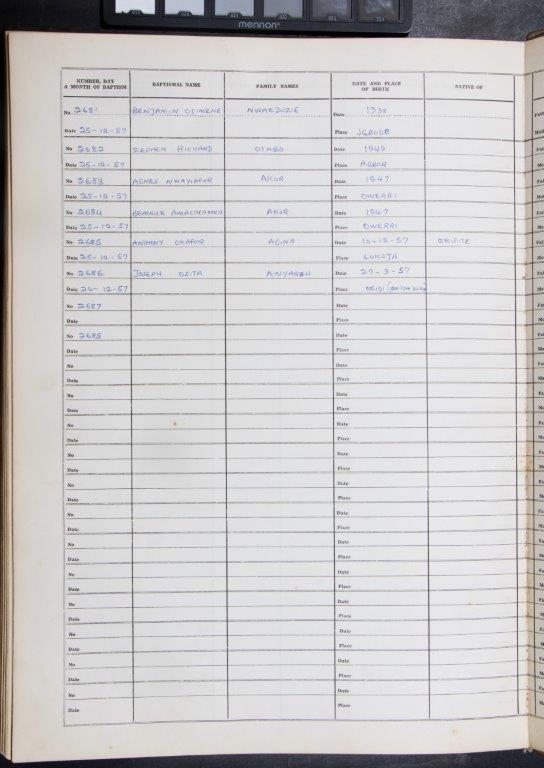 021 022 023 024
mennon
NUMBER, DAY & MONTH OF BAPTISM BAPTISMAL NAME FAMILY NAMES DATE AND PLACE OF BIRTH NATIVE OF
No. 2681 BENJAMIN OSIMENE NWAEDOZIE Date 1938
Date 25-12-57 Place IGBODE
No 2682 STEPHEN RICHARD OTABO Date 1949
Date 25-12-57 Place AGBOR
No 2683 AGNES NWAYIAFOR AKOR Date 1947
Date 25-12-57 Place OWERRI
No 2684 BEATRICE AKOR Date 1947
Date 25-12-57 Place OWERRI
No 2685 ANTHONY OKAFOR AGINA Date 10-12-57 ORIFITE
Date 25-12-57 Place LOKOJA
No 2686 JOSEPH OSITA ANYAREH Date 27-3-57
Date 26-12-57 Place OGIDI
No 2687 Date
Date Place
No 2688 Date
Date Place
No Date
Date Place
No Date
Date Place
No Date
Date Place
No Date
Date Place
No Date
Date Place
No Date
Date Place
No Date
Date Place
No Date
Date Place
No Date
Date Place
No Date
Date Place
No Date
Date Place
No Date
Date Place